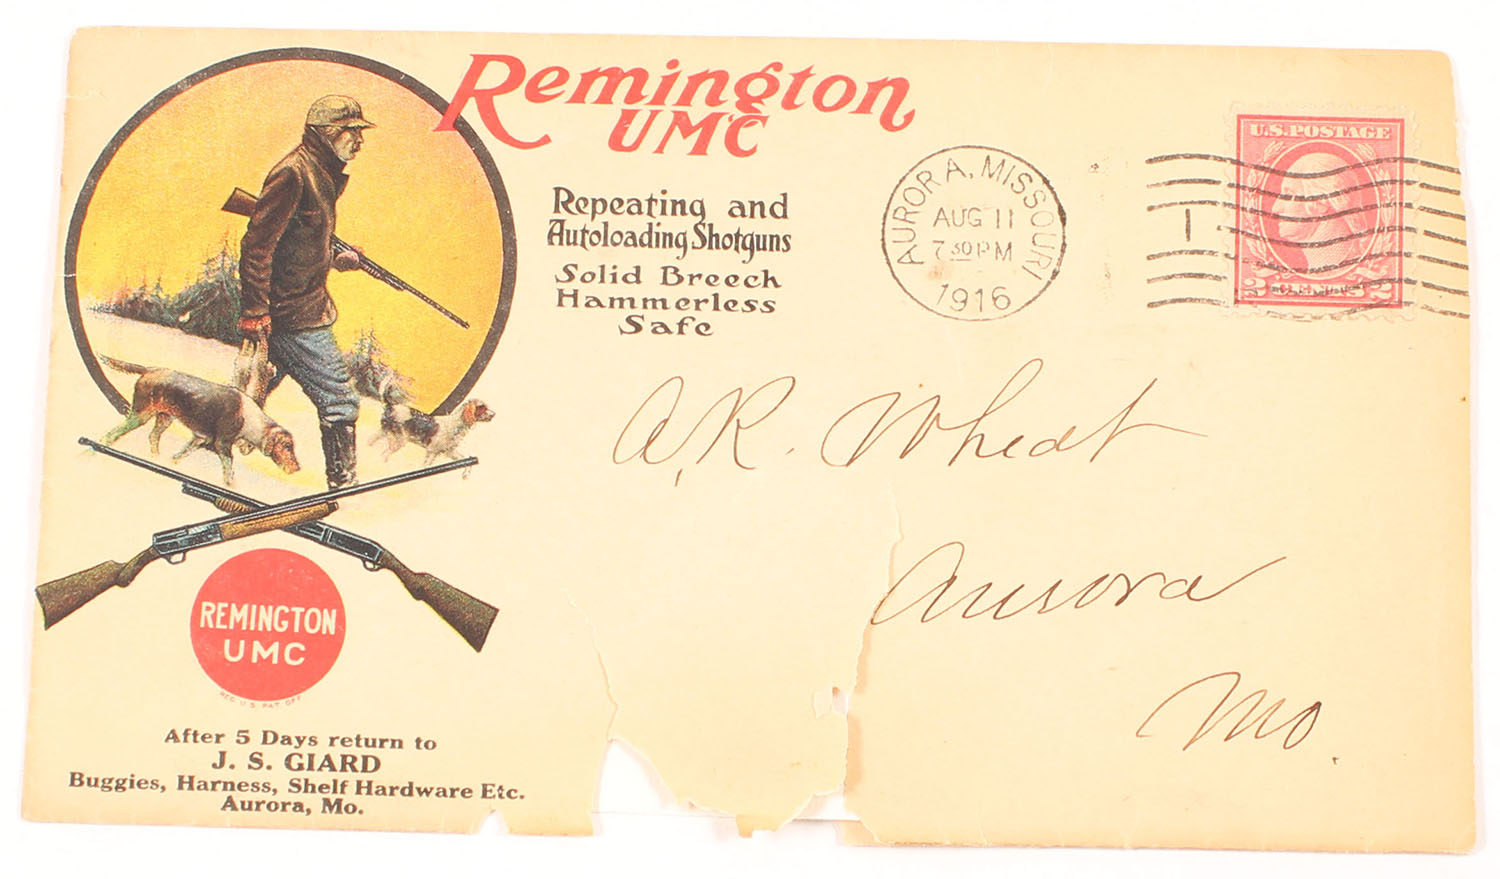 Remington
UMC
Repeating and
Autoloading Shotguns
Solid Breech
Hammerless
Safe
AURORA, MISSOURI
AUG 11
7 30 PM
1916
1
U.S. POSTAGE
2 CENTS 2
A. R. Wheat
Aurora
Mo.
REMINGTON
UMC
REG. U.S. PAT. OFF.
After 5 Days return to
J. S. GIARD
Buggies, Harness, Shelf Hardware Etc.
Aurora, Mo.